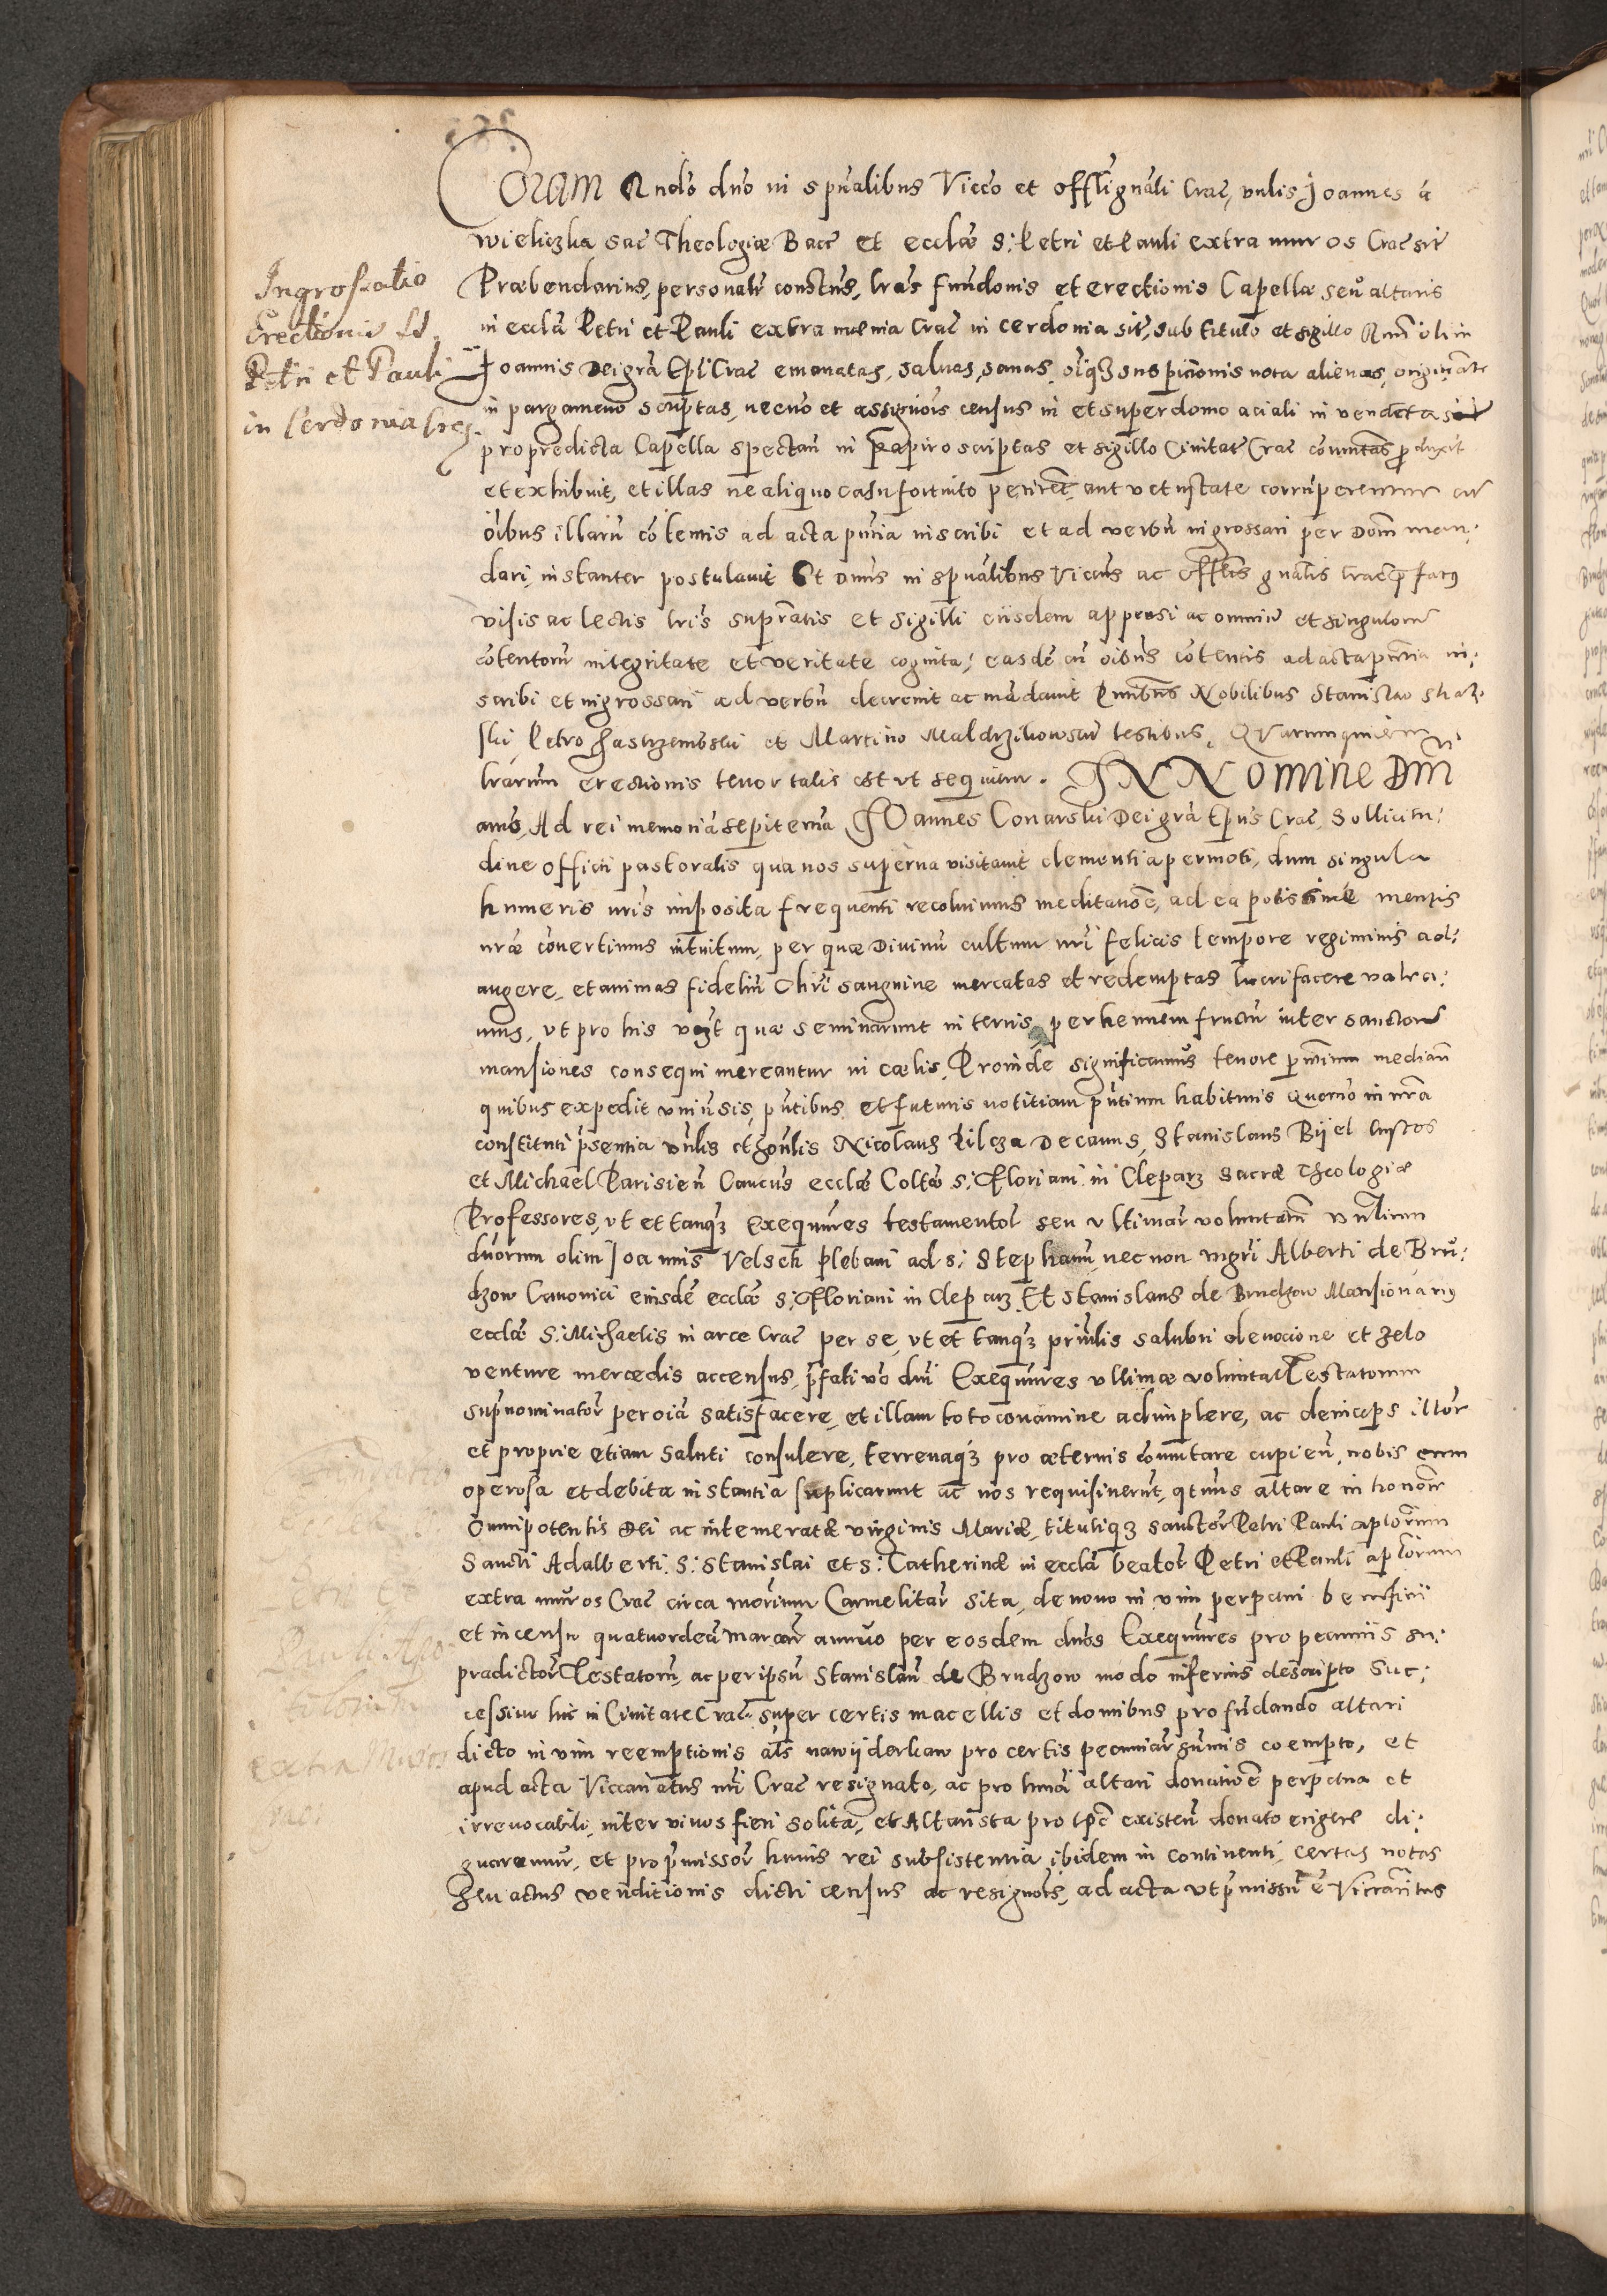 Coram Rndo dno in spualibus Viccō et offli gnāli Crac, vnlis Joannes a
Wieliczka sac Theologiæ Bacc et ecclæ S: Petri et Pauli extra muros Crac sit
Præbendarius, personalr constūs, lras fundonis et erectionis Capellæ seu altaris
in ecclā Petri et Pauli extra mænia Crac in cerdonia sit, sub titulo et sigillo Rmi olim
Joannis Dei grā Epi Crac emanatas, saluas, sanas, oīqȝ suspicionis nota alienas, originalr
in pargameno scriptas, necno et assignōis census in et super domo aciali in vendeta sit
pro predicta Capella spectan in papiro scriptas et sigillo Ciuitat Crac cōmuntas produxit
et exhibuit, et illas ne aliquo casu fortuito perirēt, aut vetustate corrūperentur cū
oibus illarū cōtentis ad acta pūtia inscribi et ad verbū ingrossari per Dom man:
dari, instanter postulauit Et Dnus in spualibus Viccus ac offlis gnalis Crac pfatꝯ
visis ac lectis lris supratis et sigilli eiisdem appensi ac omniū et singulorū
cōtentorū integritate et veritate cognita, easdē cū oibus cōtentis ad acta pūtia in:
scribi et ingrossari ad verbū decreuit ac mādauit Pntibus Nobilibus Stanislao Skar
ski Petro Jastrzembski et Martino Maldrzikowski testibus. Quarumquidem
lrarum erectionis tenor talis est vt sequitur. IN NOMINE Dni
amē, Ad rei memoriā sepiternā JOannes Conarski Dei grā Epus Crac, Sollicitu:
dine officii pastoralis qua nos superna visitauit clementia permoti, dum singula
humeris nris imposita frequenti recoluimus meditatiōe, ad ea potissime mentis
nræ cōuertimus intuitum, per quæ Diuinū cultum nri felicis tempore regiminis ad:
augere, et animas fideliū Chri sanguine mercatas et redemptas lucrifacere valea:
mus, vt pro his quæ seminarunt in terris, perhennem fructū inter sanctorū
mansiones consequi mereantur in cælis, Proinde significamus tenore pntium median
quibus expedit vniūsis, pntibus et futuris notitiam pntium habituris Quomō in nrā
constituti psentia vnlis et honlis Nicolaus Pilcza Decanus, Stanislaus Bijel Custos
et Michael Parisien Cancus ecclæ Coltæ S: Floriani in Cleparz Sacræ Theologiæ
Professores, vt et tanqȝ Exequutores testamentor seu vltimar voluntatū vnlium
duorum olim Joannis Velsch Plebani ad s: Stephanū, necnon mgri Alberti de Bru:
dzow Canonici eiusdē ecclæ s: Floriani in Cleparz Et Stanislaus de Brudzow Mansionariꝯ
ecclæ S: Michaelis in arce Crac per se, vt et tanqȝ prinlis salubri deuocione et zelo
venture mercedis accensus, pfati vo dni Exequutores vltimæ voluntat Testatorum
supnominator per oiā satisfacere, et illam toto conamine adimplere, ac deinceps illor
et proprie etiam saluti consulere, terrenaqȝ pro æternis cōmutare cupien, nobis cum
operosa et debita instantia suplicarunt ac nos requisiuerūt, qtenus altare in honore
omnipotentis Dei ac intemeratæ virginis Mariæ, tituliqȝ sanctor Petri Pauli aplorum
Sancti Adalberti. S: Stanislai et s: Catherinæ in ecclā beator Petri et Pauli aplorum
extra muros Crac circa mōrium Carmelitar sita, de nouo in vim perpetui beneficii
et in censu quatuordecī marcar annuo per eosdem dnos Exequutores pro pecuniis su:
pradictor Testatorū, ac per ipsū Stanislaū de Brudzow modo inferius descripto suc:
cessiue hic in Ciuitate Crac super certis macellis et domibus pro fūdando altari
dicto in vim reemptionis als nawijderkaw pro certis pecuniar sumis coempto, et
apud acta Viccariatus nri Crac resignato, ac pro hmōi altari donatiōe perpetua et
irreuocabili, inter viuos fieri solita, et Altarista pro tpe existen donato erigere di:
gnaremur, et pro pmissor huius rei subsistentia ibidem in continenti certas notas
seu actus venditionis dicti census ac resignōis, ad acta vt pmissū ē Viccariatus
Ingrossatio
Erectionis Sti
Petri et Pauli
in Cerdonia Crac.
Petri et
Pauli Apo
stolorum
extra Muros
rac: